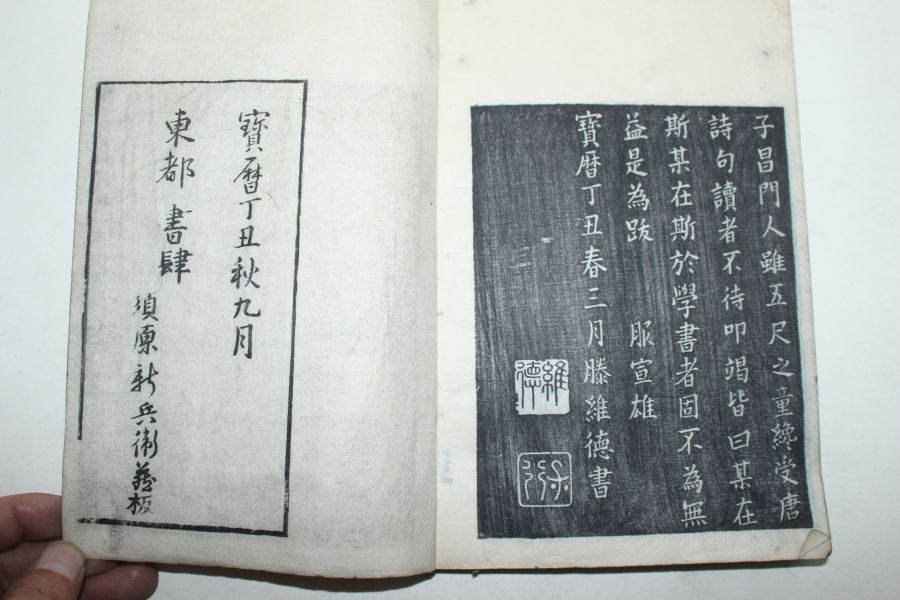 子昌門人雖五尺之童纔受唐
詩句讀者不待叩竭皆曰某在
斯某在斯於學書者固不為無
益是為跋 服宣雄
寶曆丁丑春三月滕維德書
維德
寶曆丁丑秋九月
東都 書肆
須原新兵衛藏板